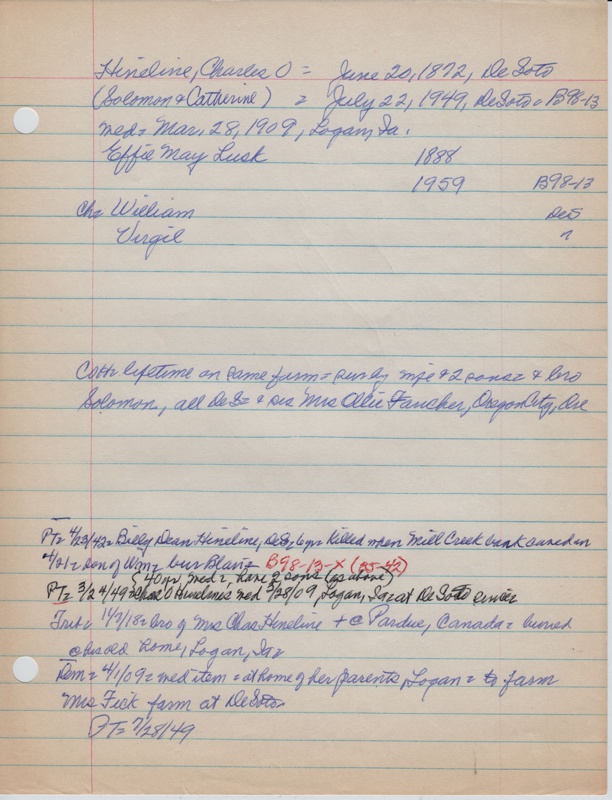 Hineline, Charles O = June 20, 1872, DeSoto
(Solomon & Catherine) = July 22, 1949, DeSoto = B98-13
med = Mar. 28, 1909, Logan, Ia.
Effie May Lusk 1888
1959 B98-13
Ch = William DeS
Virgil ?
CoH = lifetime on same farm = surv by wife & 2 sons = & bro
Solomon, all DeS = & sis Mrs Ollie Faucher, Oregon City, Ore
PT = 4/23/42 = Billy Dean Hineline, DeS = 6 yr = killed when Mill Creek bank caved in
4/21 = son of Wm = bur Blair = B98-13-X (35-42)
(40 yr, med =, have 2 sons (as above)
PT = 3/24/49 = Chas O Hineline's med 3/28/09, Logan, Ia = at DeSoto since
Trib = 11/7/18 = bro of Mrs Chas Hineline + @ Pardue, Canada = buried
@ his old home, Logan, Ia =
Dem = 4/1/09 = med item = at home of her parents, Logan = to farm
Mrs Fick farm at DeSoto
PT = 7/28/49